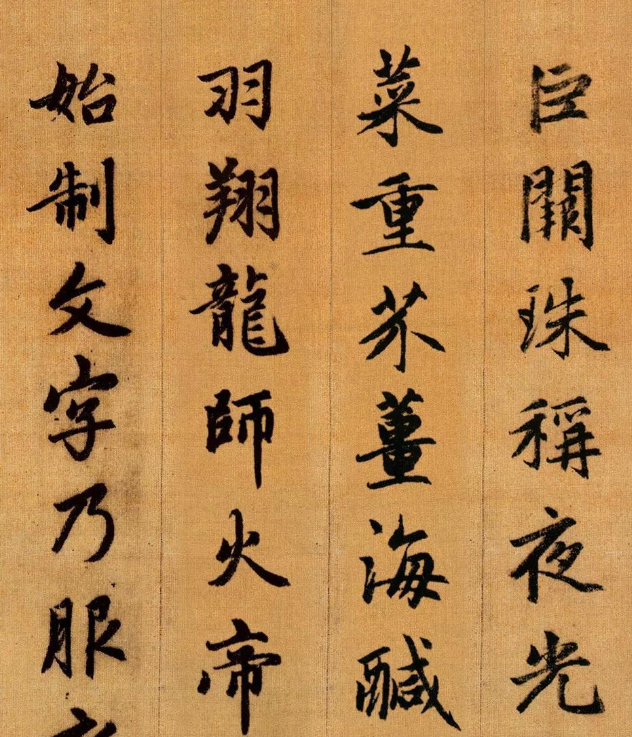 巨闕珠稱夜光
菜重芥薑海醎
羽翔龍師火帝
始制文字乃服衣